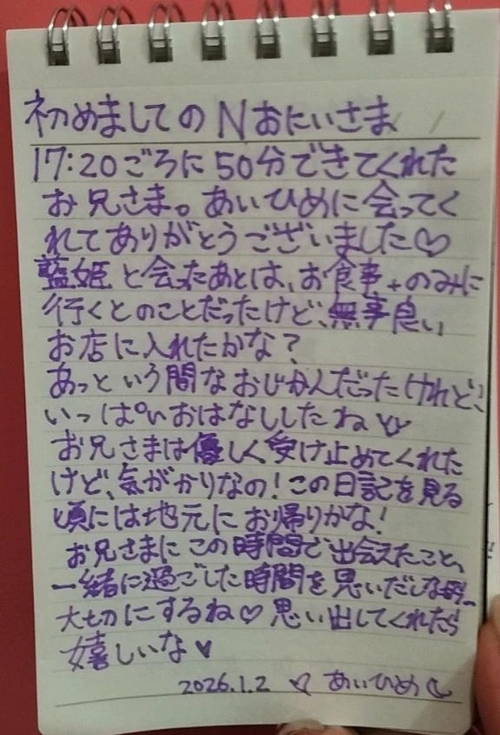 初めましてのNおにいさま
17:20ごろに50分できてくれた
お兄さま。あいひめに会ってく
れてありがとうございました♡
藍姫と会ったあとは、お食事+のみに
行くとのことだったけど、無事良い
お店に入れたかな?
あっという間なおじかんだったけれど、
いっぱいおはなししたね♡
お兄さまは優しく受け止めてくれた
けど、気がかりなの!この日記を見る
頃には地元にお帰りかな!
お兄さまにこの時間で出会えたこと、
一緒に過ごした時間を思いだしながら
大切にするね♡思い出してくれたら
嬉しいな♥
2026.1.2 ♡あいひめ